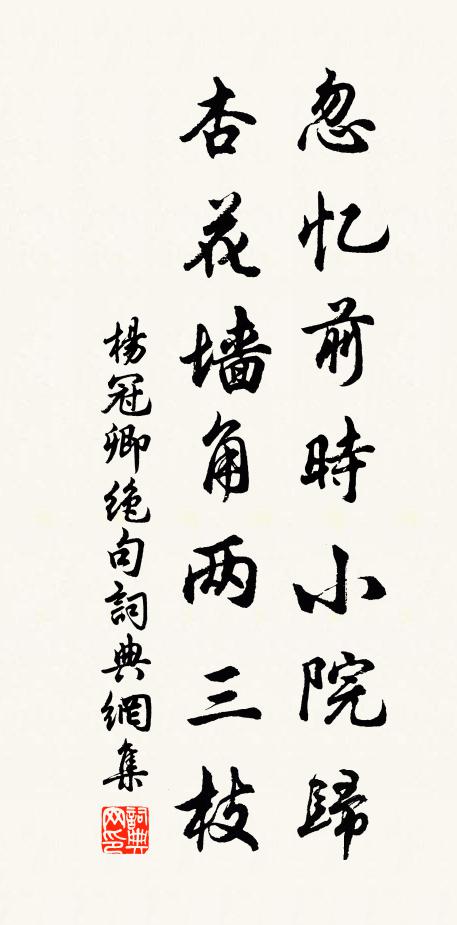 忽忆前時小院歸
杏花墙角两三枝
楊冠卿绝句詞典網集
詞典网印